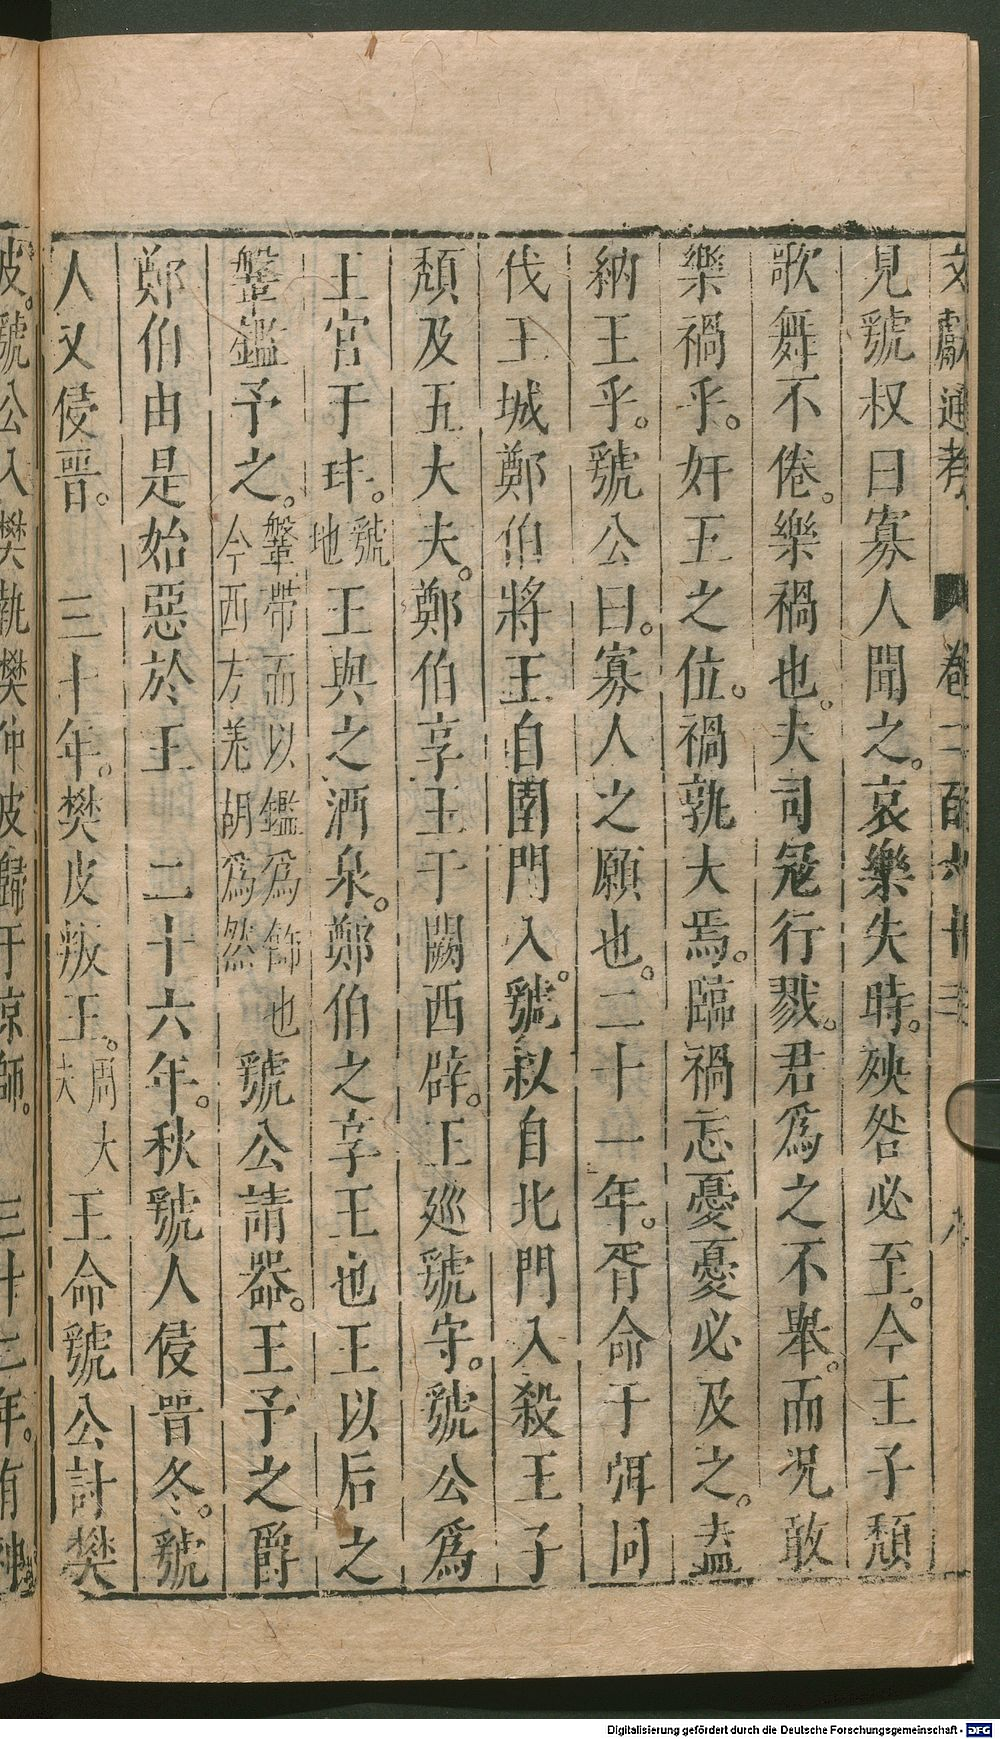 文獻通考 卷二百六十三 八
見虢叔曰寡人聞之。哀樂失時。殃咎必至。今王子頹
歌舞不倦。樂禍也。夫司冦行戮。君爲之不舉。而況敢
樂禍乎。奸王之位。禍孰大焉。臨禍忘憂憂必及之。盍
納王乎。虢公曰。寡人之願也。二十一年。胥命于弭同
伐王城鄭伯將王自圉門入。虢叔自北門入殺王子
頹及五大夫。鄭伯享王于闕西辟。王廵虢守。虢公爲
王宫于玤。虢地 王與之酒泉。鄭伯之享王也王以后之
鞶鑑予之。鞶帶而以鑑爲飾也今西方羌胡爲然 虢公請器。王予之爵
鄭伯由是始惡於王 二十六年。秋虢人侵晋冬。虢
人又侵晋。 三十年。樊皮叛王。周大夫 王命虢公討樊
皮。虢公入樊執樊仲皮歸于京師。 三十二年。有神
Digitalisierung gefördert durch die Deutsche Forschungsgemeinschaft - DFG